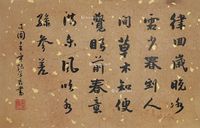 律回歲晚冰
霜少春到人
間草木知便
覺眼前春意
滿東風吹水
綠參差